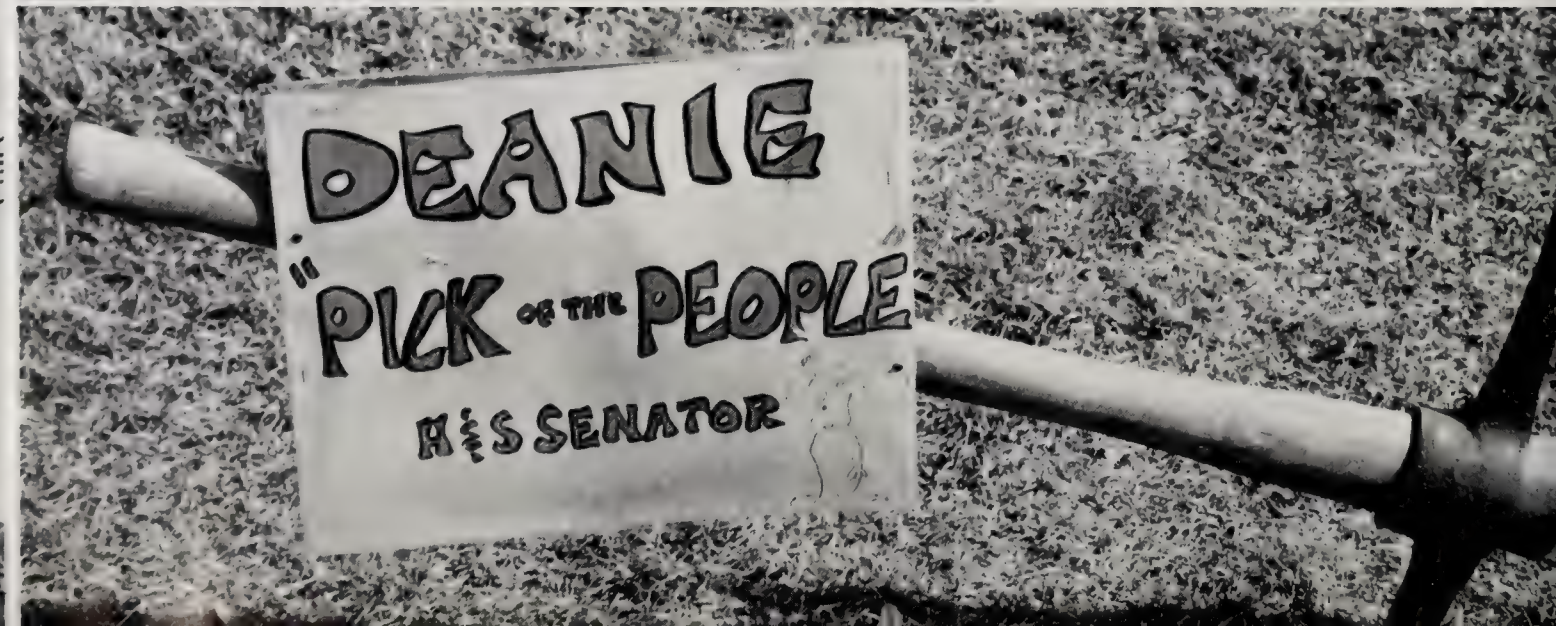 DEANIE
"PICK OF THE PEOPLE
H&S SENATOR